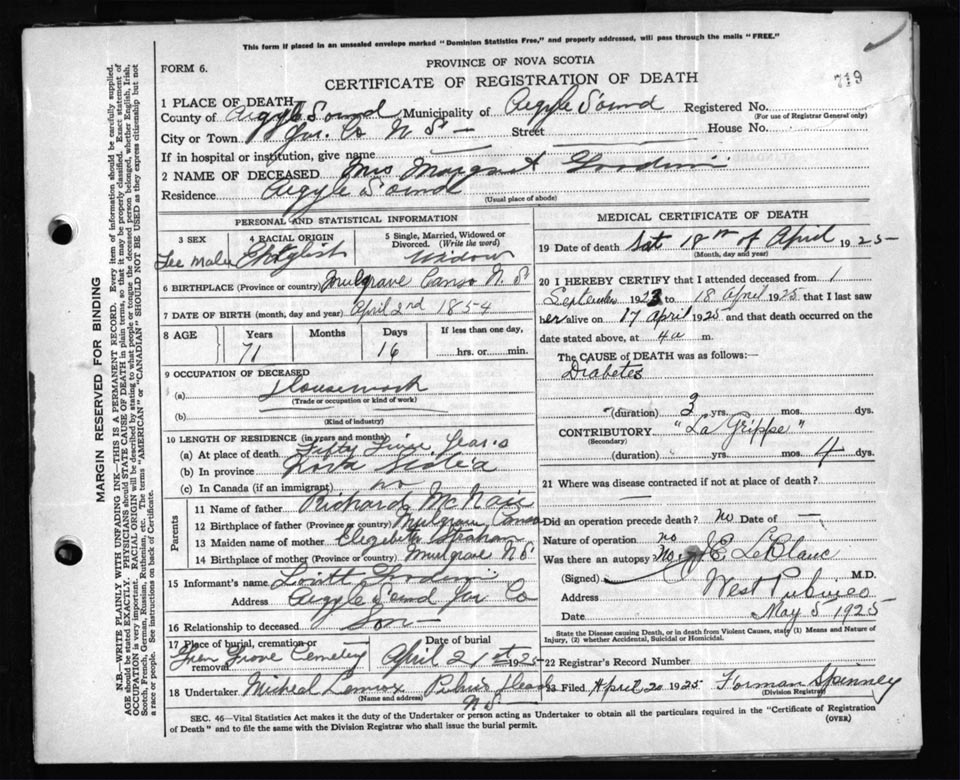 This form if placed in an unsealed envelope marked "Dominion Statistics Free," and properly addressed, will pass through the mails "FREE."
FORM 6.
PROVINCE OF NOVA SCOTIA
CERTIFICATE OF REGISTRATION OF DEATH
719
1 PLACE OF DEATH
County of Argyle Sound Municipality of Argyle Sound Registered No.
(For use of Registrar General only)
City or Town Yar. Co N S — Street House No.
If in hospital or institution, give name
2 NAME OF DECEASED Mrs Margaret Goodwin
Residence Argyle Sound
(Usual place of abode)
PERSONAL AND STATISTICAL INFORMATION
3 SEX Fee Male
4 RACIAL ORIGIN English
5 Single, Married, Widowed or Divorced. (Write the word) Widow
6 BIRTHPLACE (Province or country) Mulgrave Canso N. S
7 DATE OF BIRTH (month, day and year) April 2nd 1854
8 AGE Years 71 Months Days 16 If less than one day, hrs. or min.
9 OCCUPATION OF DECEASED
(a) Housework
(Trade or occupation or kind of work)
(b)
(Kind of industry)
10 LENGTH OF RESIDENCE (in years and months)
(a) At place of death Fifty Five Years
(b) In province Nova Scotia
(c) In Canada (if an immigrant) no
Parents
11 Name of father Richard McNair
12 Birthplace of father (Province or country) Mulgrave Canso
13 Maiden name of mother Elizebeth Strahan
14 Birthplace of mother (Province or country) Mulgrave NS
15 Informant's name Goodwin
Address Argyle Sound Yar Co
16 Relationship to deceased Son —
17 Place of burial, cremation or removal Glen Grove Cemetery
Date of burial April 21st 1925
18 Undertaker Micheal Lennox Pubnico Head
N S
(Name and address)
MEDICAL CERTIFICATE OF DEATH
19 Date of death Sat 18th of April 1925
(Month, day and year)
20 I HEREBY CERTIFY that I attended deceased from
September 1923 to 18 April 1925 that I last saw
her alive on 17 April 1925 and that death occurred on the
date stated above, at 4 a m.
The CAUSE of DEATH was as follows:—
Diabetes
(duration) 3 yrs. mos. dys.
CONTRIBUTORY "La Grippe"
(Secondary)
(duration) yrs. mos. 4 dys.
21 Where was disease contracted if not at place of death?
—
Did an operation precede death? no Date of —
Nature of operation no
Was there an autopsy no
(Signed) J E LeBlanc M.D.
Address West Pubnico
Date May 5 1925
State the Disease causing Death, or in death from Violent Causes, state (1) Means and Nature of Injury, (2) whether Accidental, Suicidal or Homicidal.
22 Registrar's Record Number
23 Filed April 20 1925 Forman Spinney
(Division Registrar)
SEC. 46—Vital Statistics Act makes it the duty of the Undertaker or person acting as Undertaker to obtain all the particulars required in the "Certificate of Registration
of Death" and to file the same with the Division Registrar who shall issue the burial permit.
(OVER)
MARGIN RESERVED FOR BINDING
N.B.—WRITE PLAINLY WITH UNFADING INK—THIS IS A PERMANENT RECORD. Every item of information should be carefully supplied.
AGE should be stated EXACTLY. PHYSICIANS should STATE CAUSE OF DEATH in plain terms, so that it may be properly classified. Exact statement of
OCCUPATION is very important. RACIAL ORIGIN will be described by stating to what people or tongue the deceased person belonged, whether English, Irish,
Scotch, French, German, Russian, Ruthenian, etc. The terms "AMERICAN" or "CANADIAN" SHOULD NOT BE USED as they express citizenship but not
a race or people. See instructions on back of Certificate.